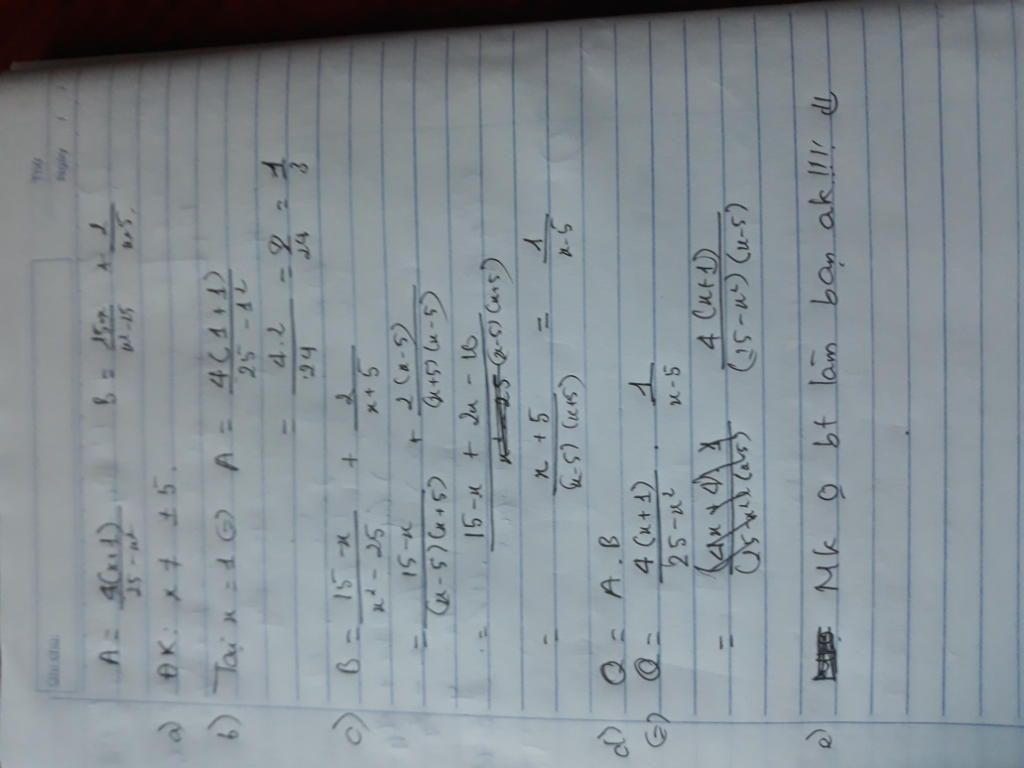 A = 4(x+1) / 25 - x² B = 15-x / x² - 25 + 2 / x+5
a) ĐK: x ≠ ±5.
b) Tại x = 1 (=) A = 4(1+1) / 25 - 1²
= 4.2 / 24 = 8 / 24 = 1 / 3
c) B = 15-x / x² - 25 + 2 / x+5
= 15-x / (x-5)(x+5) + 2(x-5) / (x+5)(x-5)
= 15-x + 2x - 10 / (x-5)(x+5)
= x+5 / (x-5)(x+5) = 1 / x-5
d) Q = A.B
(=) Q = 4(x+1) / 25 - x² . 1 / x-5
= 4(x+1) / (25-x²)(x-5)
e) Mk o bt làm bạn ak!!!!